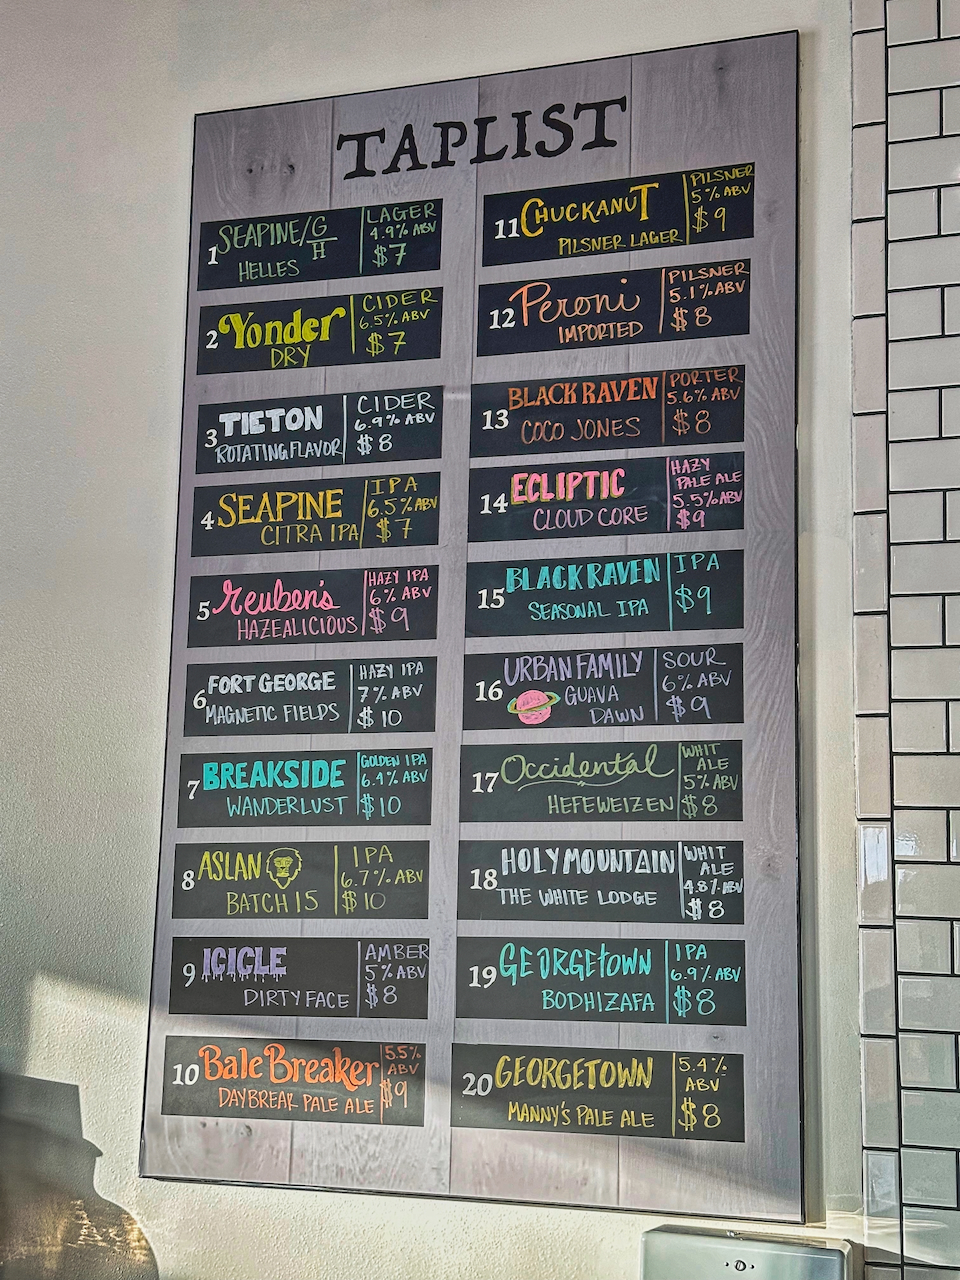 TAPLIST
1 SEAPINE/G/H
HELLES
LAGER
4.9% ABV
$7
2 Yonder
DRY
CIDER
6.5% ABV
$7
3 TIETON
ROTATING FLAVOR
CIDER
6.9% ABV
$8
4 SEAPINE
CITRA IPA
IPA
6.5% ABV
$7
5 Reuben's
HAZEALICIOUS
HAZY IPA
6% ABV
$9
6 FORT GEORGE
MAGNETIC FIELDS
HAZY IPA
7% ABV
$10
7 BREAKSIDE
WANDERLUST
GOLDEN IPA
6.4% ABV
$10
8 ASLAN
BATCH 15
IPA
6.7% ABV
$10
9 ICICLE
DIRTY FACE
AMBER
5% ABV
$8
10 Bale Breaker
DAYBREAK PALE ALE
5.5%
ABV
$9
11 CHUCKANUT
PILSNER LAGER
PILSNER
5% ABV
$9
12 Peroni
IMPORTED
PILSNER
5.1% ABV
$8
13 BLACK RAVEN
COCO JONES
PORTER
5.6% ABV
$8
14 ECLIPTIC
CLOUD CORE
HAZY
PALE ALE
5.5% ABV
$9
15 BLACK RAVEN
SEASONAL IPA
IPA
$9
16 URBAN FAMILY
GUAVA
DAWN
SOUR
6% ABV
$9
17 Occidental
HEFEWEIZEN
WHIT
ALE
5% ABV
$8
18 HOLY MOUNTAIN
THE WHITE LODGE
WHIT
ALE
4.8% ABV
$8
19 GEORGETOWN
BODHIZAFA
IPA
6.9% ABV
$8
20 GEORGETOWN
MANNY'S PALE ALE
5.4%
ABV
$8